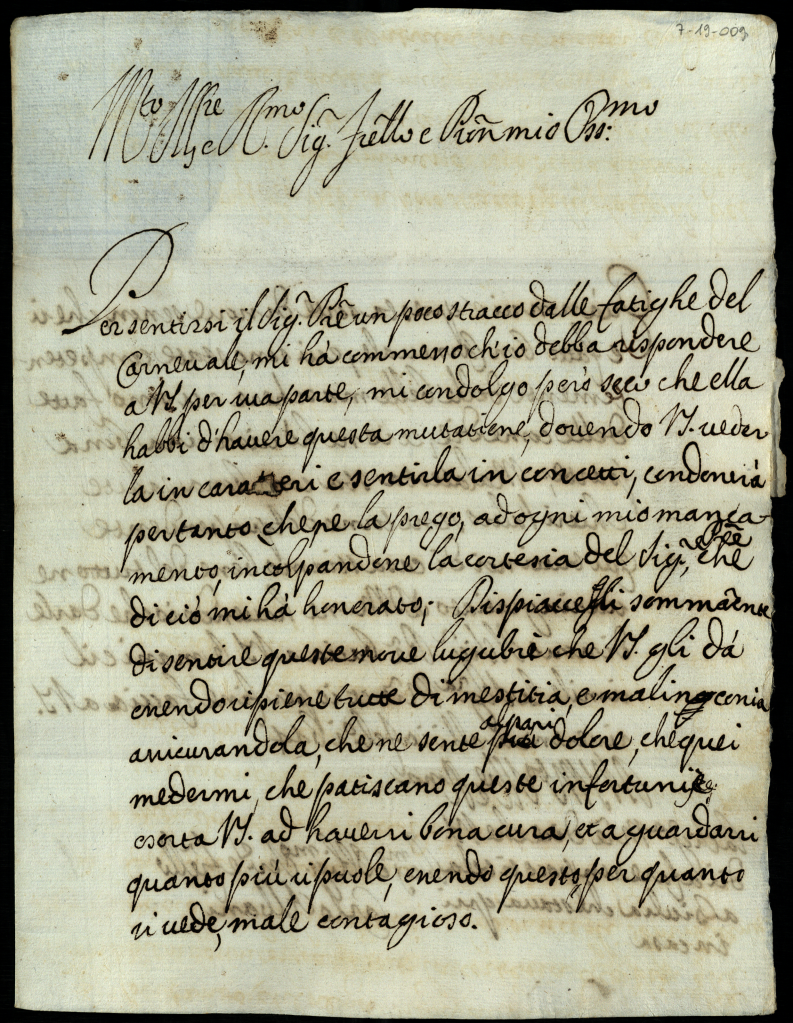 7-19-009
Mto Illre e Rmo Sig.r frello e Pron mio Oss:mo
Per sentirsi il Sig.r Pre un poco stracco dalle fatighe del
Carnevale, mi há commesso ch'io debba rispondere
a VS. per sua parte, mi condolgo però seco che ella
habbi d'havere questa mutatione, dovendo VS. veder
la in caratteri e sentirla in concetti, condonerá
per tanto, che ne la prego, ad ogni mio manca-
mento, incolpandone la cortesia del Sig.re Pre che
di ció mi há honorato; Dispiace gli sommamente
di sentire queste nove lugubri che VS. gli dá
essendo ripiene tutte di mestitia, e malinconia
assicurandola, che ne sente al pari dolore, che quei
medesmi, che patiscano queste infortunij, e
esorta VS. ad haversi bona cura, et a guardarsi
quanto piú si puole, essendo questo, per quanto
si vede, male contagioso.